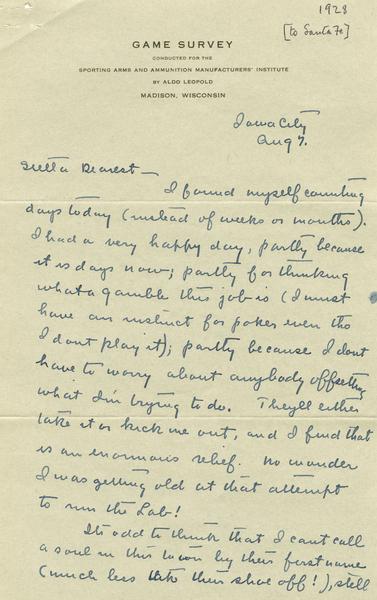 1928
[to Santa Fe]
GAME SURVEY
CONDUCTED FOR THE
SPORTING ARMS AND AMMUNITION MANUFACTURERS' INSTITUTE
BY ALDO LEOPOLD
MADISON, WISCONSIN
Iowa City
Aug 7.
Estella Dearest —
I found myself counting
days today (instead of weeks or months).
I had a very happy day, partly because
it is days now; partly for thinking
what a gamble this job is (I must
have an instinct for poker even tho
I dont play it); partly because I dont
have to worry about anybody offsetting
what I'm trying to do. They'll either
take it or kick me out, and I find that
is an enormous relief. No wonder
I was getting old at that attempt
to run the Lab!
Its odd to think that I can't call
a soul in this town by their first name
(much less take their shoe off!), still